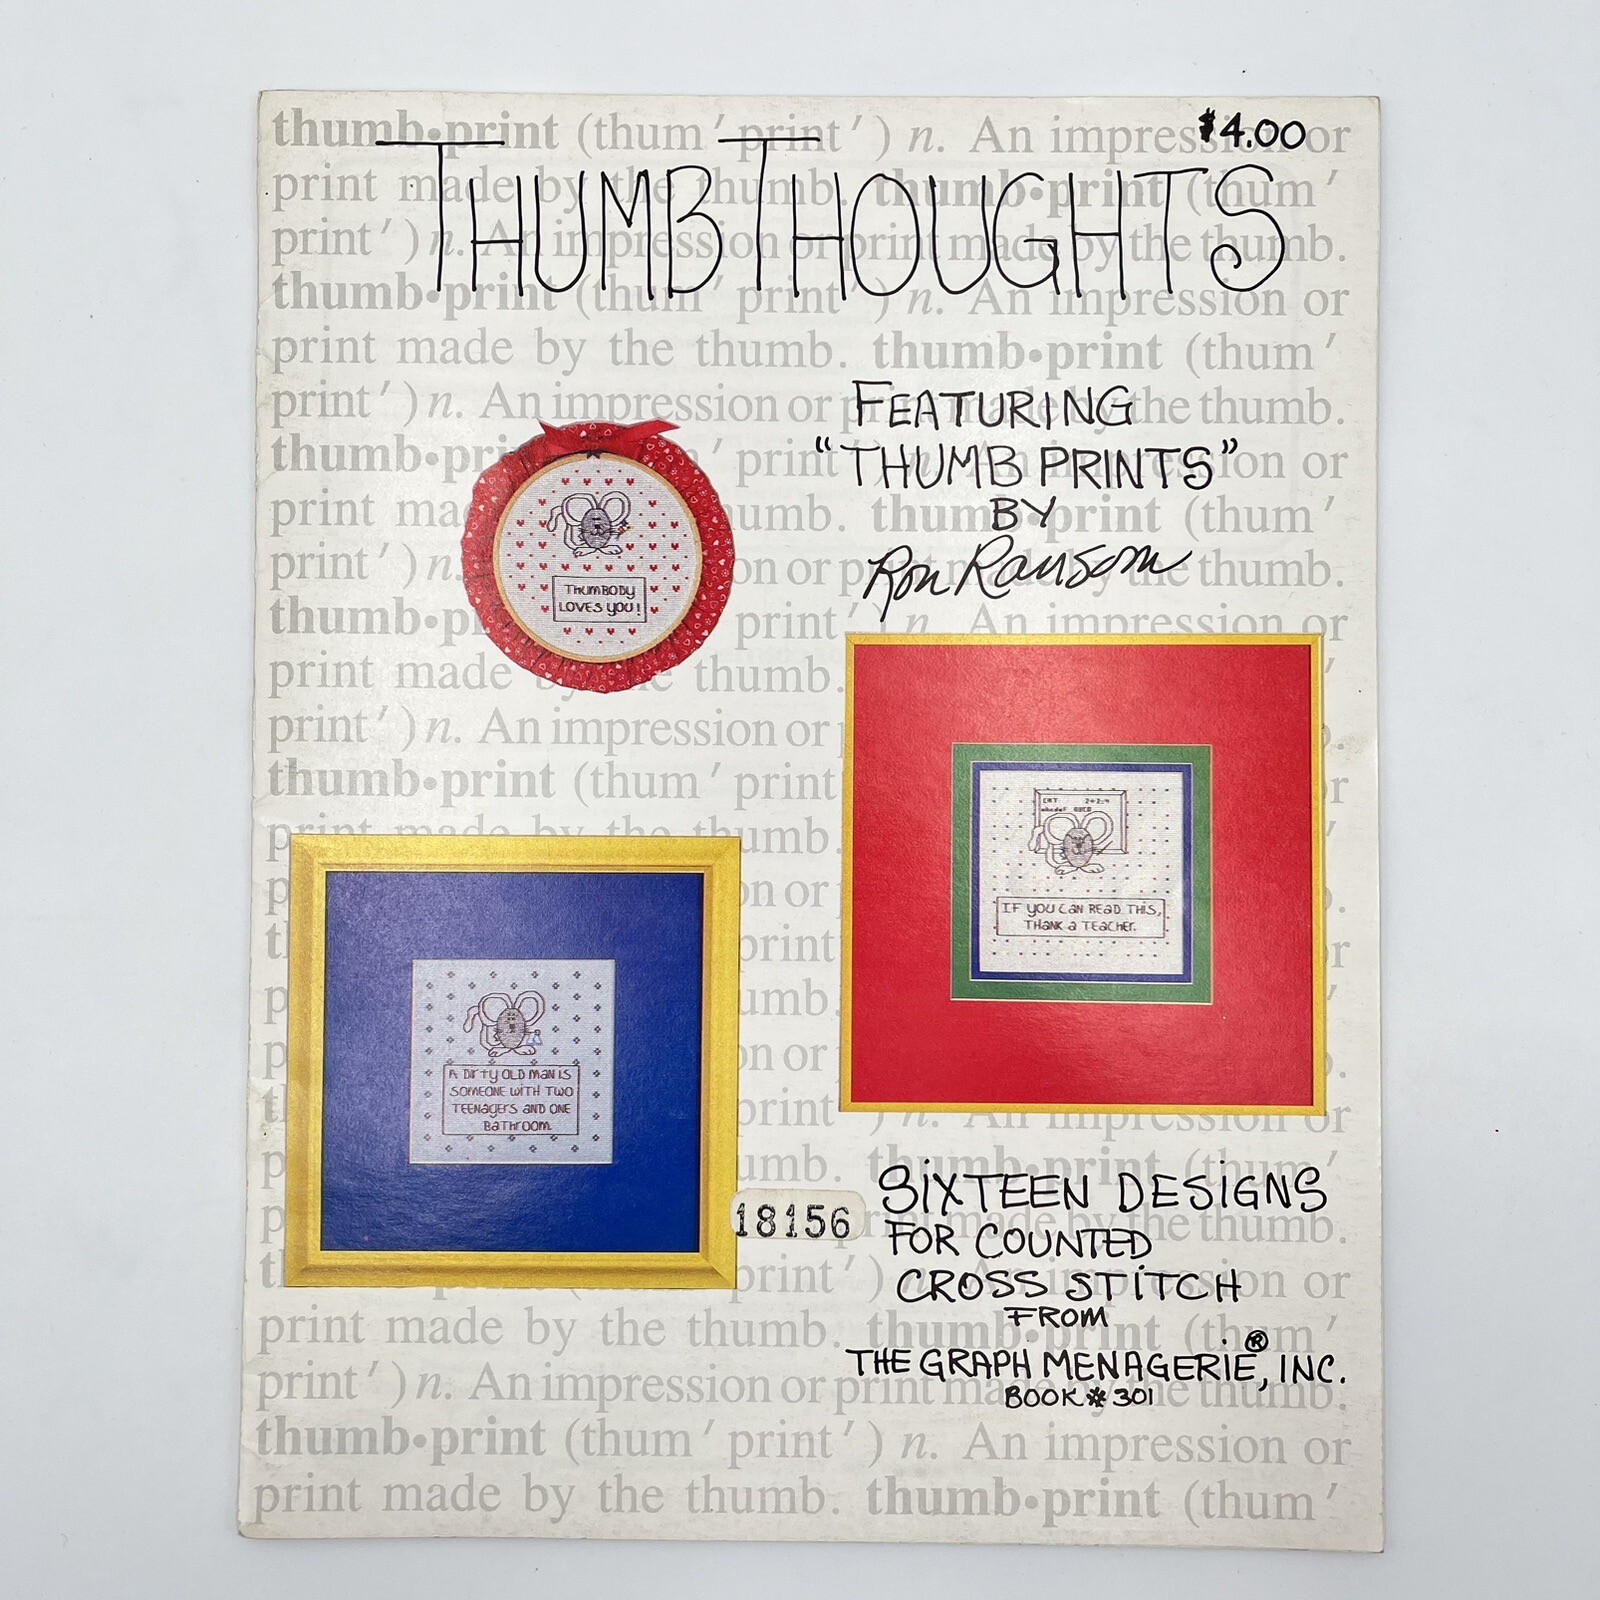 $4.00
thumb•print (thum′ print′) n. An impression or
THUMBTHOUGHTS
print made by the thumb. thumb•print (thum′
print′) n. An impression or print made by the thumb.
thumb•print (thum′ print′) n. An impression or
print made by the thumb. thumb•print (thum′
print′) n. An impression or print made by the thumb.
FEATURING
"THUMB PRINTS"
BY
Ron Ransom
print′) n. An impression or
print′) n. An impression or
thumb•print (thum′ print′
print made by the thumb.
THUMBODY
LOVES YOU!
CAT 2+2=4
IF YOU CAN READ THIS,
THANK A TEACHER.
A DIRTY OLD MAN IS
SOMEONE WITH TWO
TEENAGERS AND ONE
BATHROOM.
18156
SIXTEEN DESIGNS
FOR COUNTED
CROSS STITCH
FROM
THE GRAPH MENAGERIE®, INC.
BOOK # 301
print made by the thumb. thumb•print (thum′
print′) n. An impression or print made by the thumb.
thumb•print (thum′ print′) n. An impression or
print made by the thumb. thumb•print (thum′